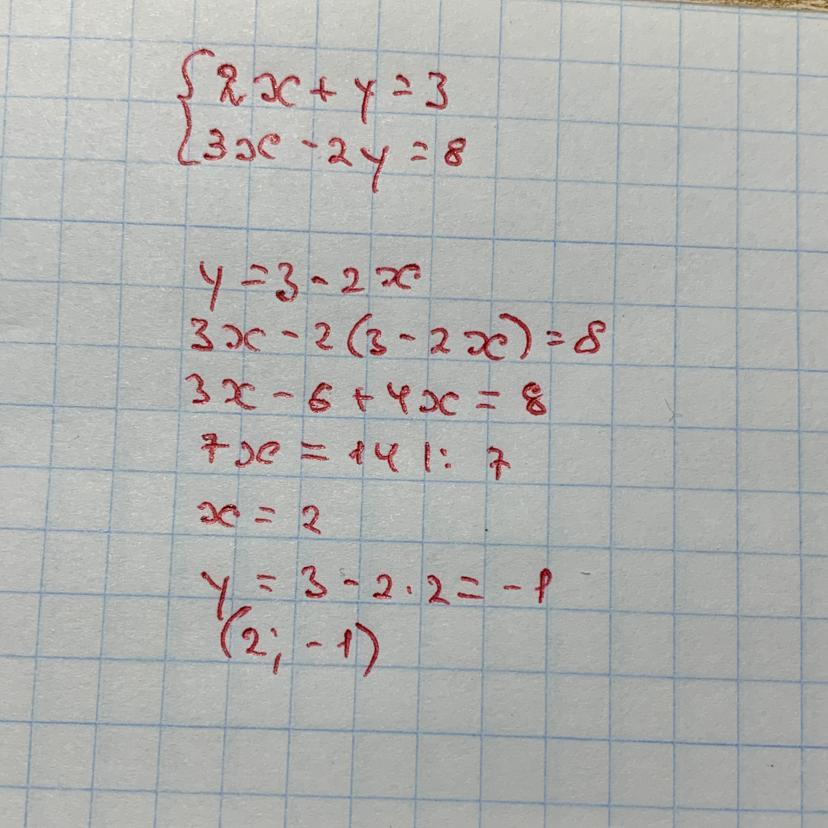 {2x + y = 3
3x - 2y = 8
y = 3 - 2x
3x - 2(3 - 2x) = 8
3x - 6 + 4x = 8
7x = 14 |: 7
x = 2
y = 3 - 2 · 2 = -1
(2; -1)